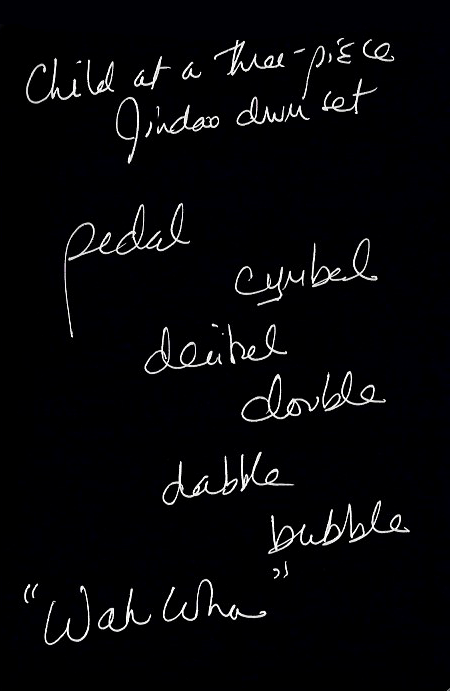 Child at a three-piece
Jindao drum set
pedal
cymbal
decibel
double
dabble
bubble
"Wah Wha"